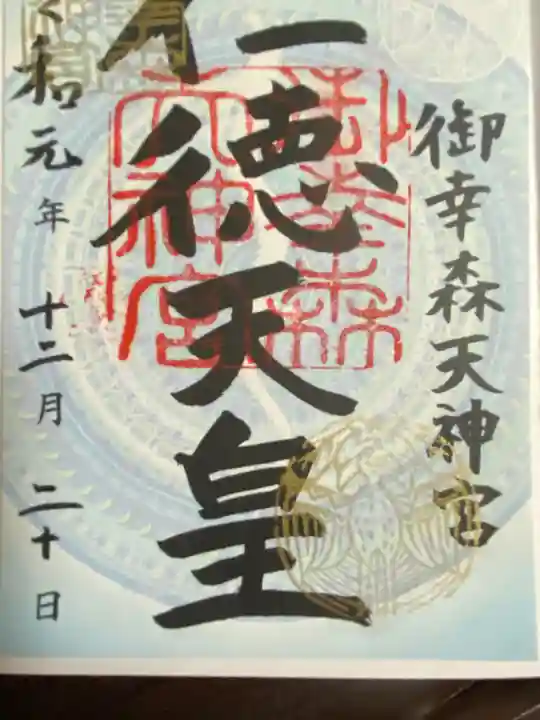 御幸森天神宮
仁徳天皇
御幸森
天神宮
令和元年 十二月 二十日